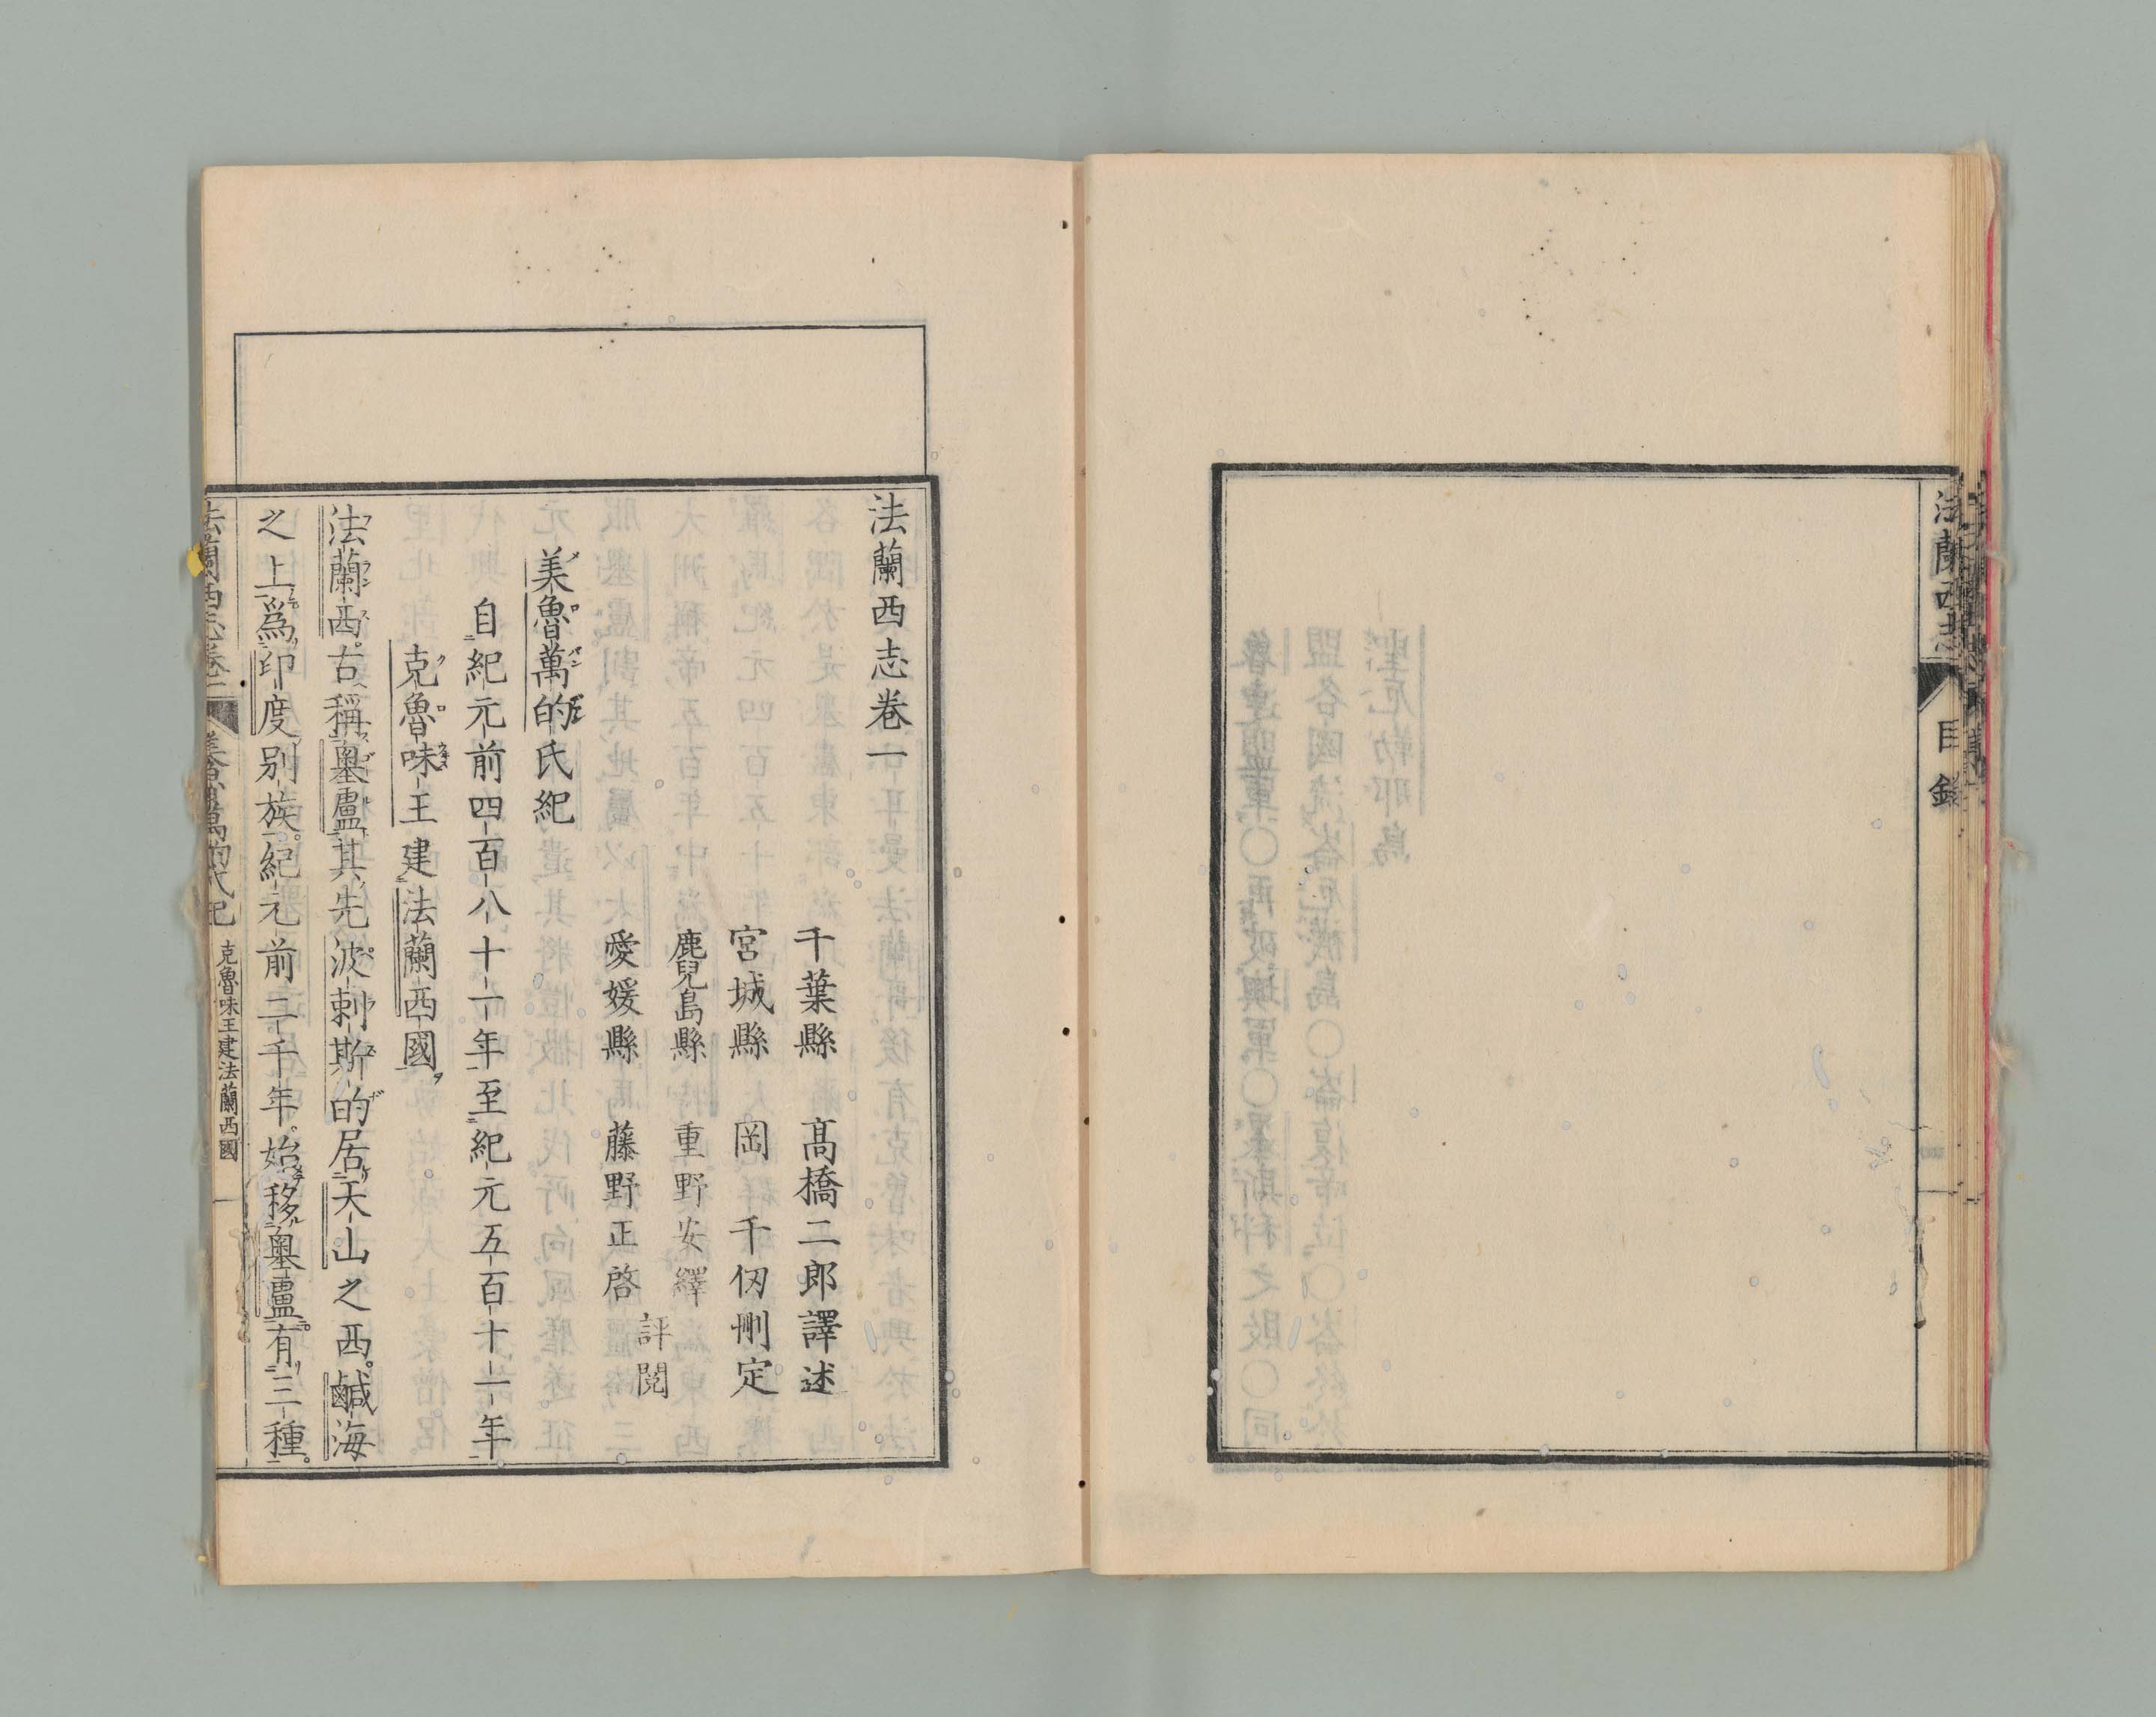 法蘭西志
目錄
法蘭西志卷一
千葉縣 髙橋二郎譯述
宮城縣 岡千仭刪定
鹿兒島縣 重野安繹
愛媛縣 藤野正啓
評閱
美魯萬的氏紀
自紀元前四百八十一年至紀元五百十一年
克魯味王建法蘭西國
法蘭西古稱墺盧其先波剌斯的居天山之西鹹海
之上爲印度别族紀元前二千年始移墺盧有三種
法蘭西志卷一 美魯萬的氏紀 克魯味王建法蘭西國 一